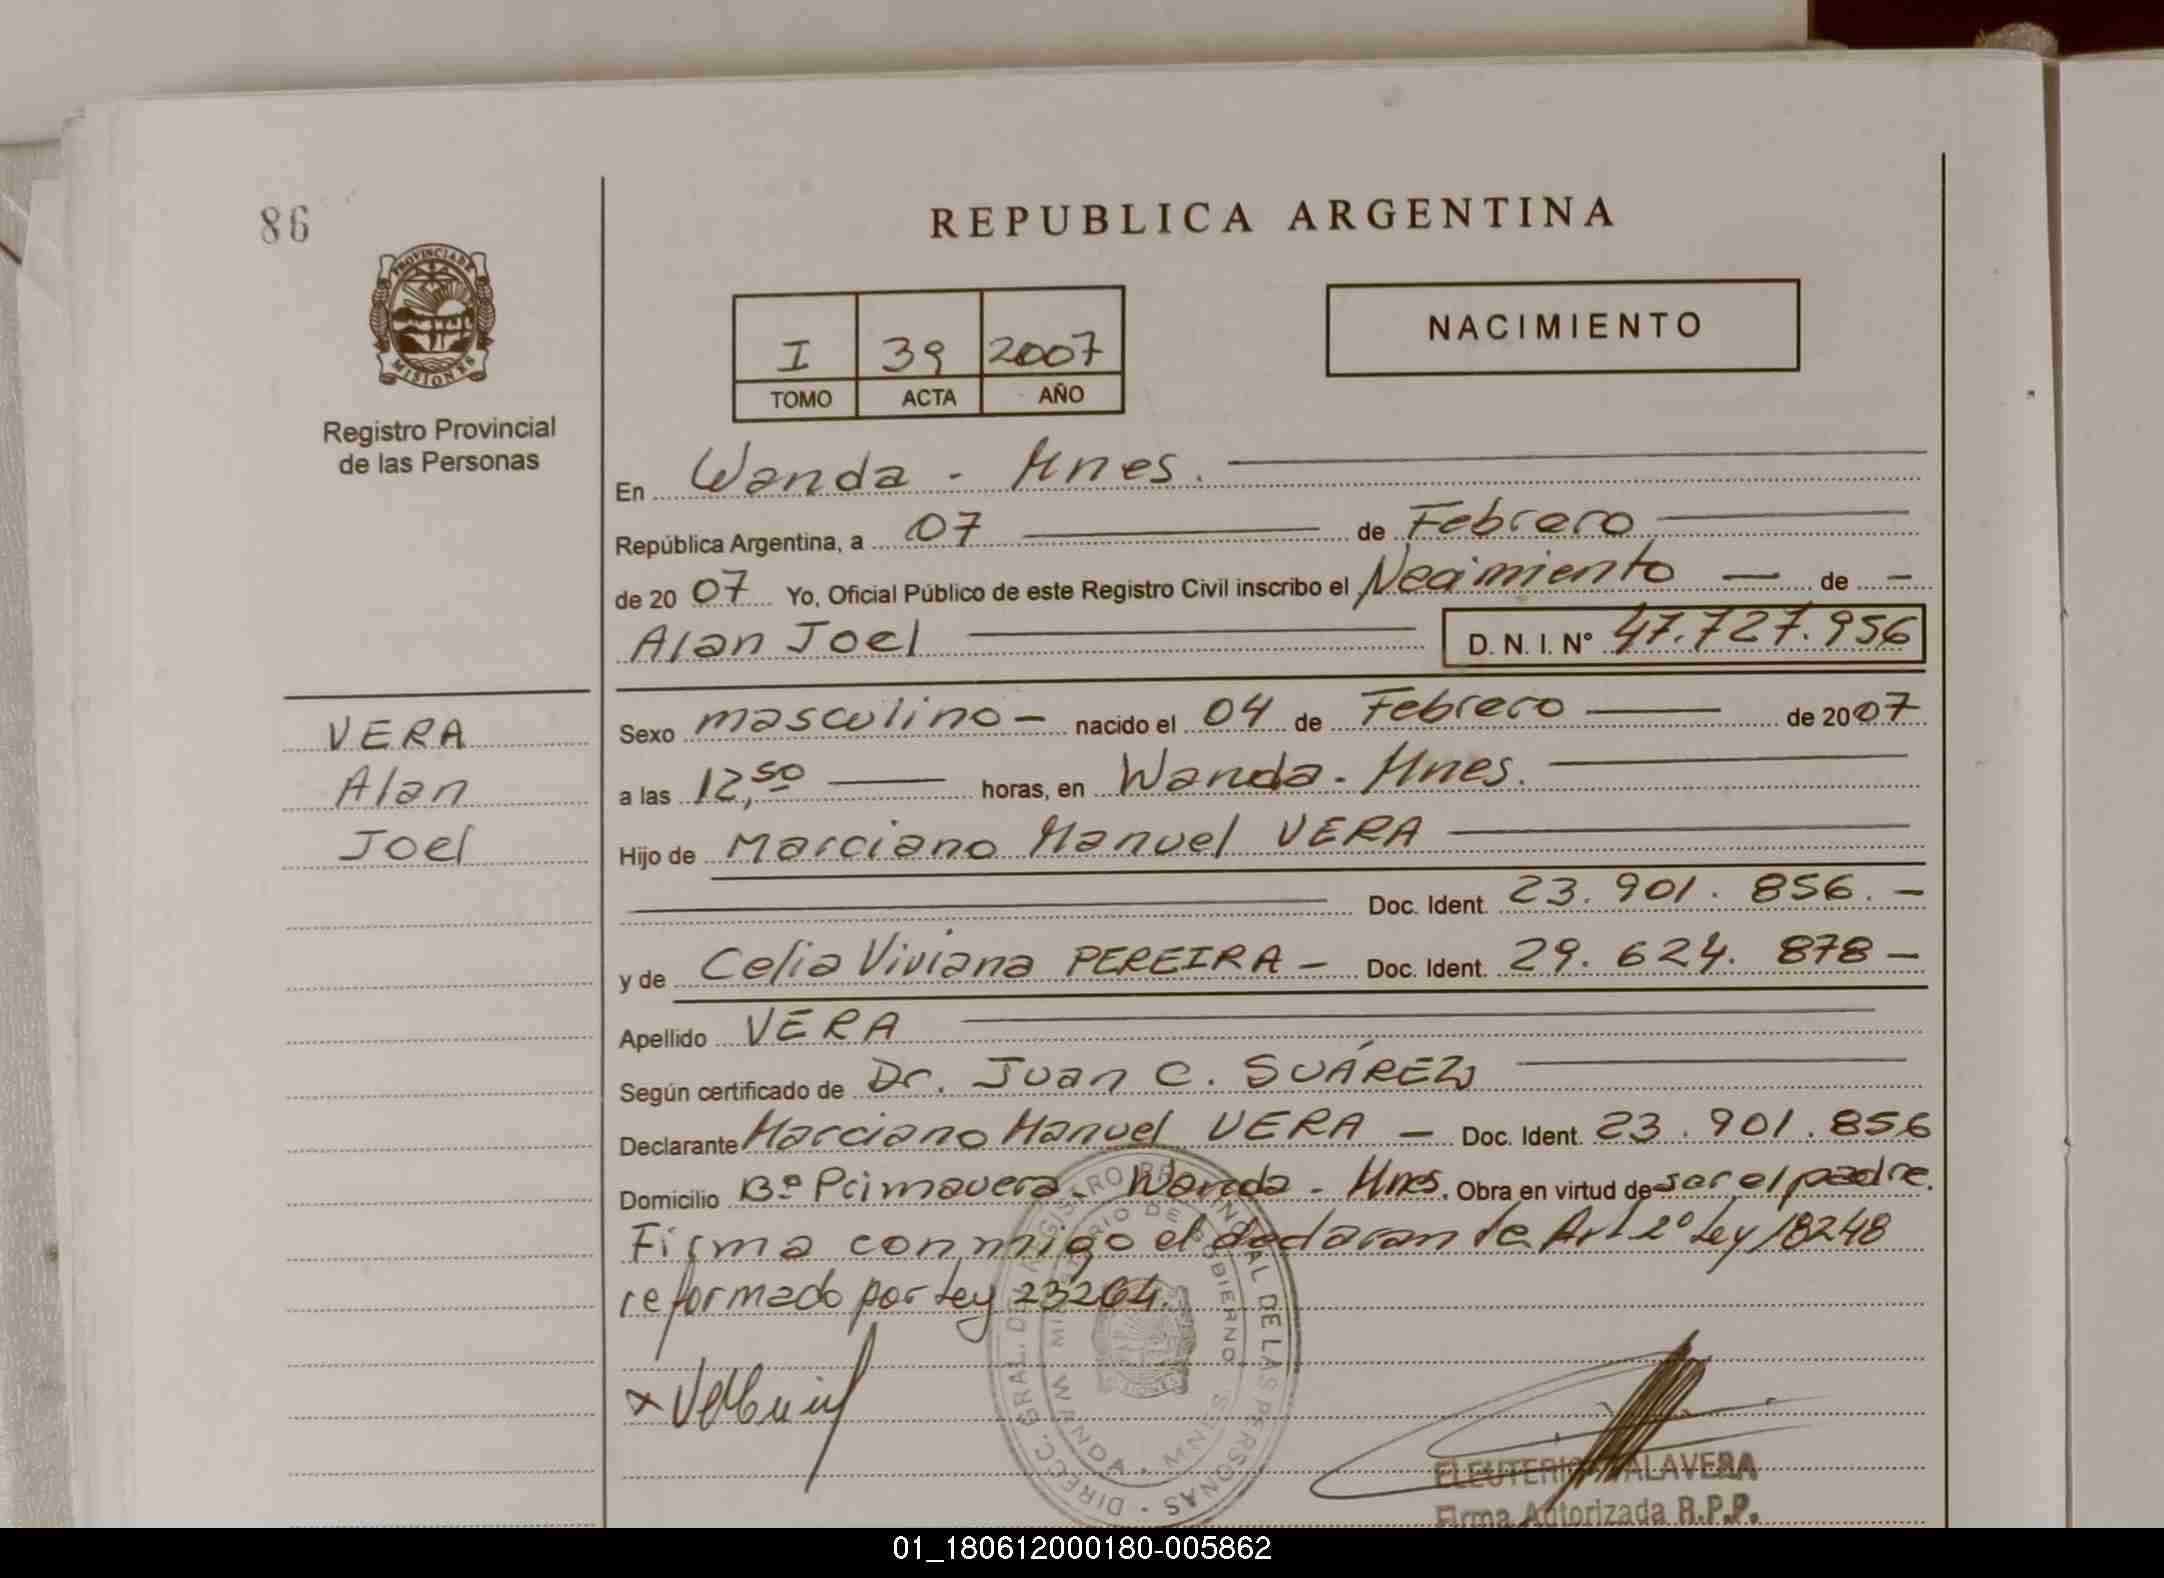 86
REPUBLICA ARGENTINA
PROVINCIA DE
MISIONES
Registro Provincial
de las Personas
I 39 2007
TOMO ACTA AÑO
NACIMIENTO
En Wanda - Mnes.
República Argentina, a 07 de Febrero
de 20 07 Yo, Oficial Público de este Registro Civil inscribo el Nacimiento — de –
Alan Joel D. N. I. N° 47.727.956
VERA
Alan
Joel
Sexo masculino – nacido el 04 de Febrero de 2007
a las 12,50 horas, en Wanda - Mnes.
Hijo de Marciano Manuel VERA
Doc. Ident. 23. 901. 856. –
y de Celia Viviana PEREIRA – Doc. Ident. 29. 624. 878 –
Apellido VERA
Según certificado de Dr. Juan C. SUÁREZ
Declarante Marciano Manuel VERA – Doc. Ident. 23. 901. 856
Domicilio Bº Primavera - Wanda - Mnes. Obra en virtud de ser el padre.
Firma conmigo el declarante Art 2º Ley 18248
reformado por Ley 23264.
DIRECC. GRAL. DEL REGISTRO PROVINCIAL DE LAS PERSONAS
MINISTERIO DE GOBIERNO
WANDA - MNES.
ELEUTERIO TALAVERA
Firma Autorizada R.P.P.
01_180612000180-005862